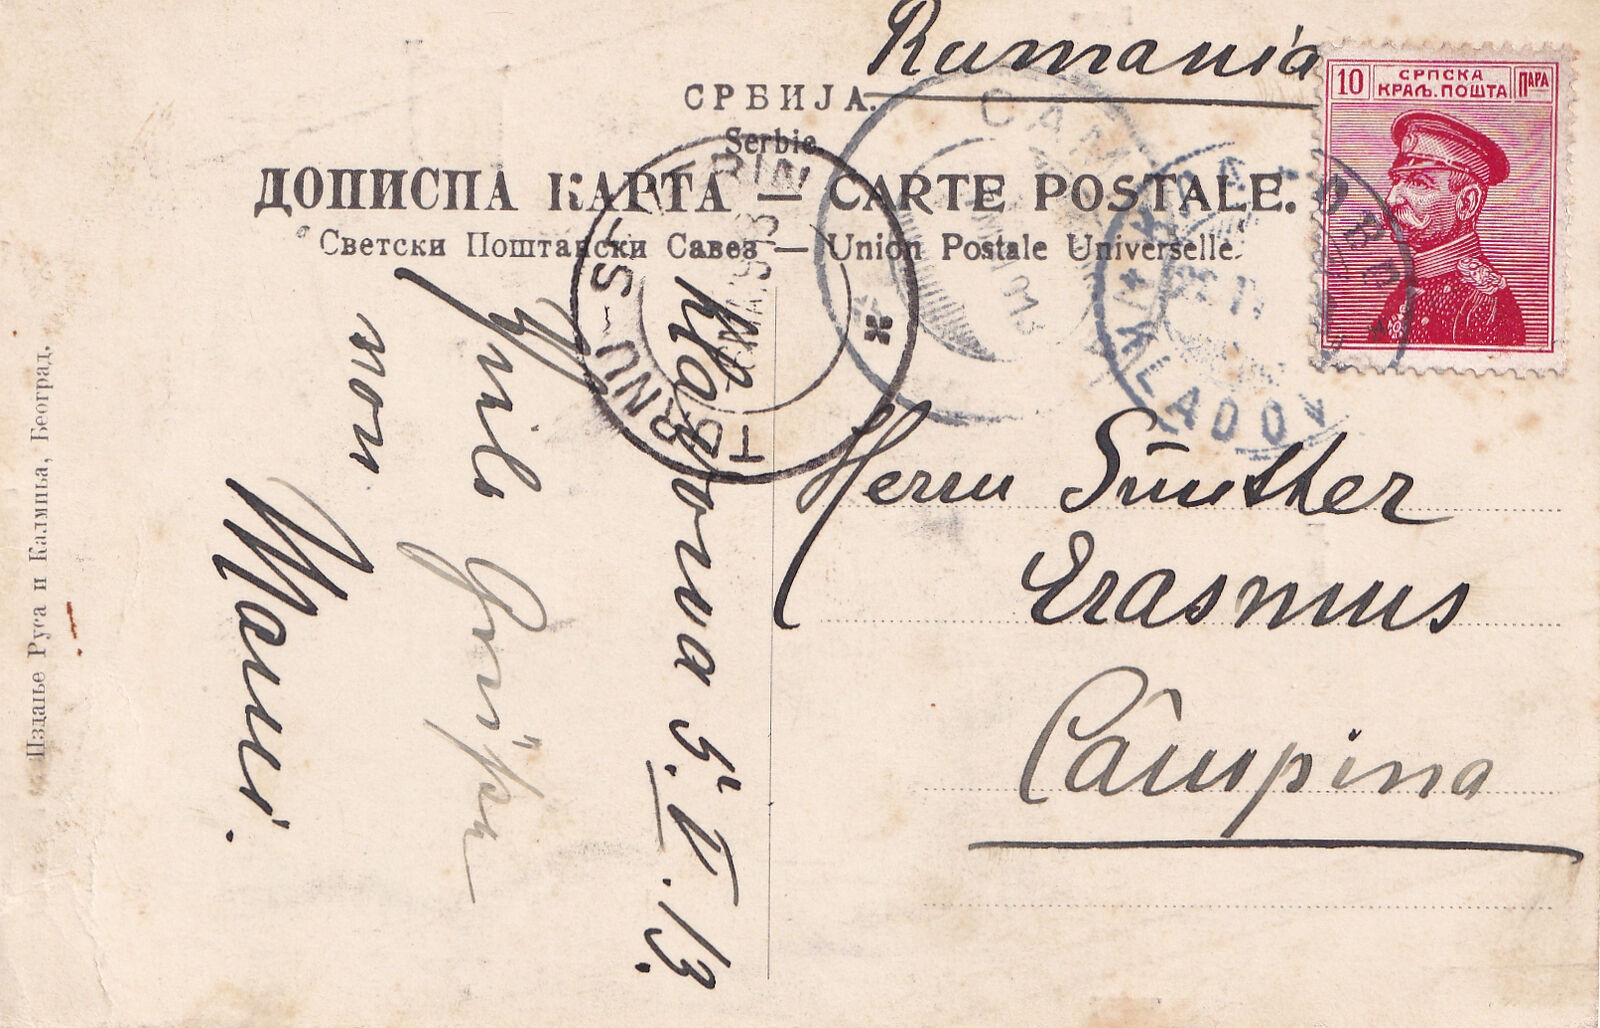 Rumania
СРБИЈА.
Serbie
ДОПИСПА КАРТА — CARTE POSTALE.
Светски Поштански Савез — Union Postale Universelle.
10 СРПСКА КРАЉ. ПОШТА ПАРА
TURNU-SEVERIN
CAM
KLADOVA
Herrn Günther
Erasmus
Câmpina
Kladova 5.V.13.
Viele Grüße
von
Mami.
Издање Руса и Калмића, Београд.